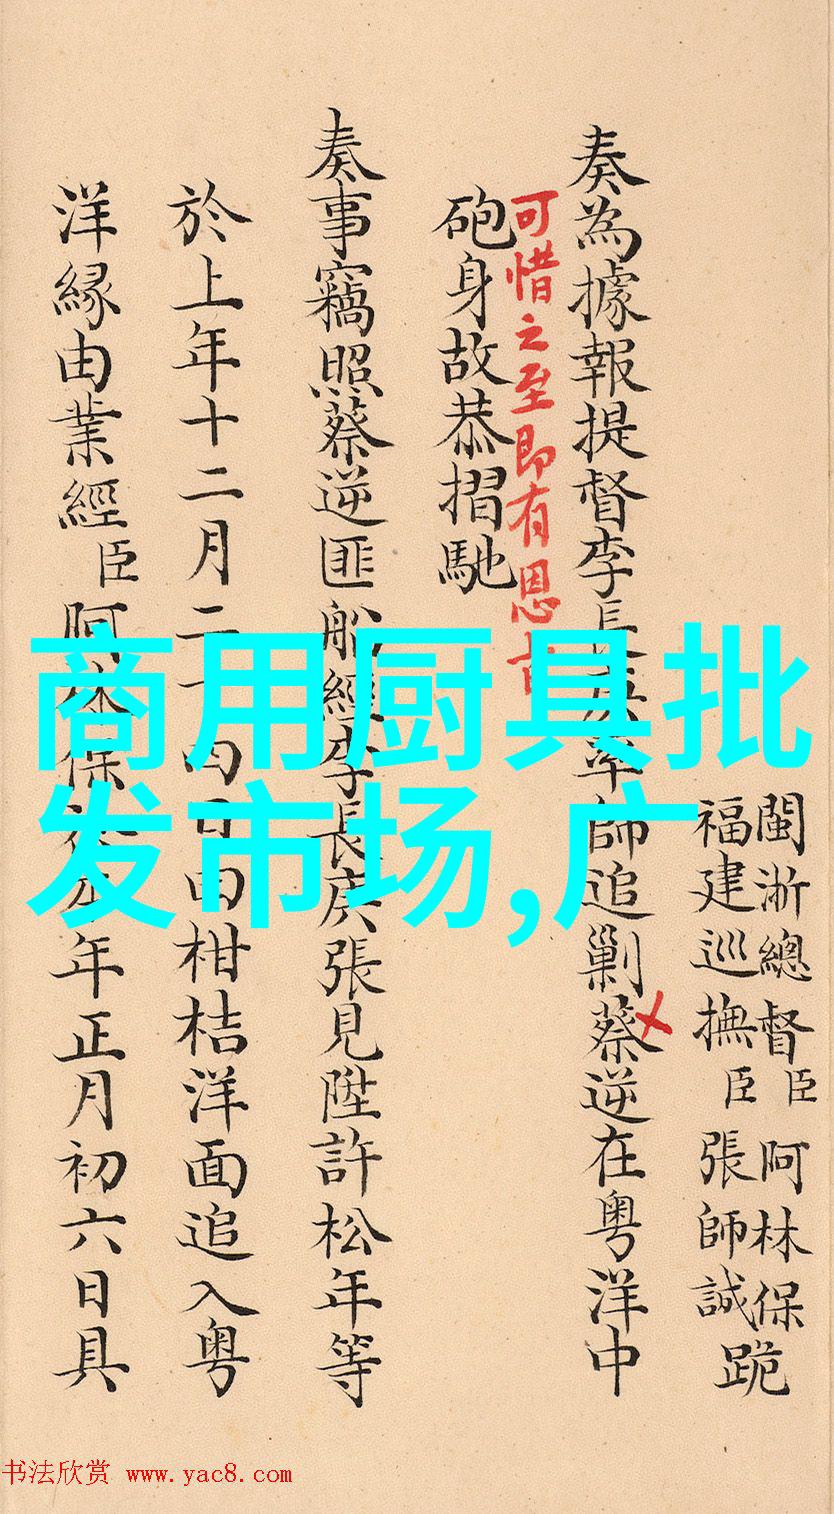 閩浙總督臣阿林保
福建巡撫臣張師誠
跪
奏為據報提督李長庚率師追剿蔡逆在粤洋中
可惜之至即有恩旨
砲身故恭摺馳
奏事竊照蔡逆匪船經李長庚張見陞許松年等
於上年十二月二日由柑桔洋面追入粤
洋緣由業經臣阿林保年正月初六日具
商用厨具批
发市场,广
书法欣赏 www.yac8.com